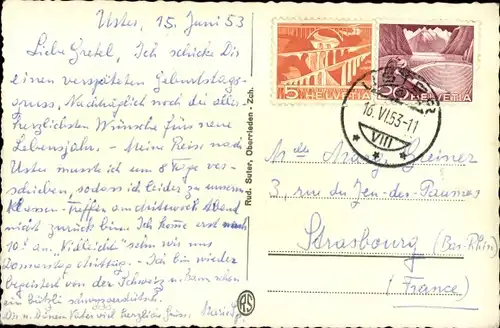 Uster, 15. Juni 53
Liebe Gretel, Ich schicke Dir
einen verspäteten Geburtstags-
gruss, Nachträglich noch die aller-
herzlichsten Wünsche fürs neue
Lebensjahr. - Meine Reise nach
Uster musste ich um 8 Tage ver-
schieben, sodass ich leider zu unserem
Klassen-Treffen am Mittwoch Abend
nicht zurück bin. Ich komme erst nach
10! an. "Vielleicht" sehn wir uns
Donnerstag Mittag. - Ich bin wieder
begeistert von der Schweiz u. kann schon
ein bützli
Dir u. Deinem Vater viel herzliche Grüsse.
Rud. Suter, Oberrieden - Zch.
RS
15 HELVETIA
50 HELVETIA
USTER
16. VI. 53 - 11
VIII
Mlle
3, rue du Jeu-des-Paumes
Strasbourg
(Bas-Rhin)
(France)